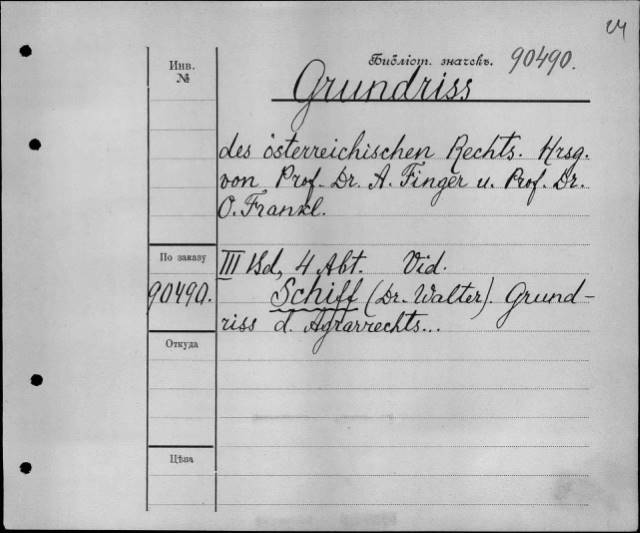 24
Инв.
№
Библіот. значекъ. 90490.
Grundriss
des österreichischen Rechts. Hrsg.
von Prof. Dr. A. Finger u. Prof. Dr.
O. Frankl.
По заказу
90490.
III Bd, 4 Abt. Vid.
Schiff (Dr. Walter). Grund-
riss d. Agrarrechts...
Откуда
Цѣна